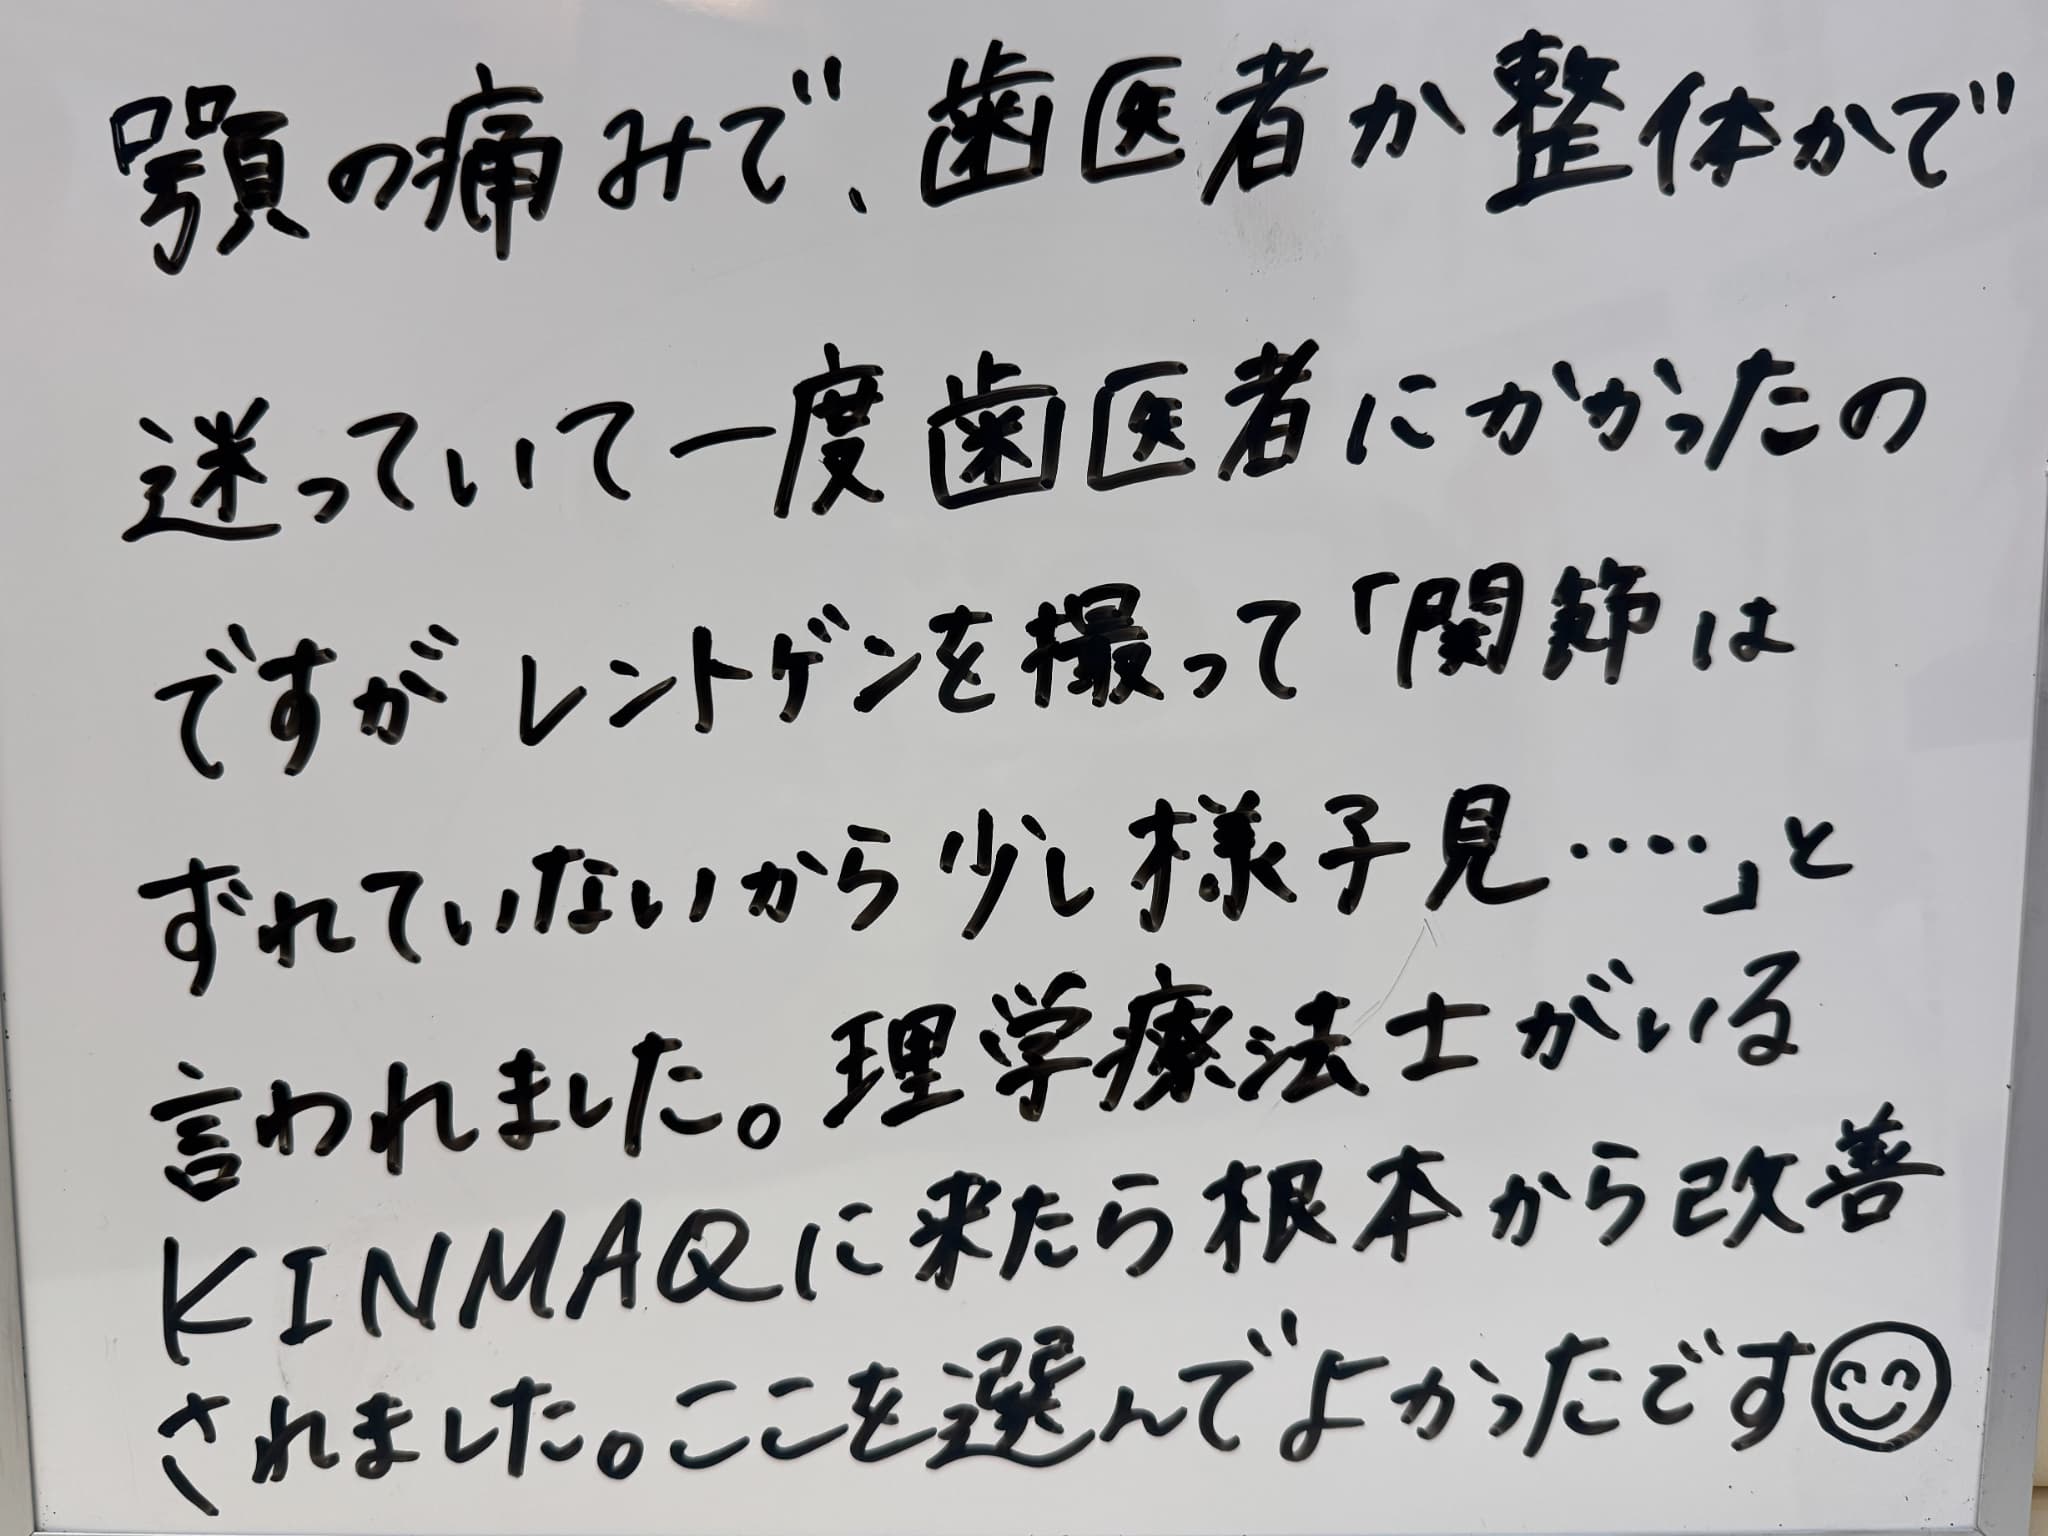 顎の痛みで、歯医者か整体かで
迷っていて一度歯医者にかかったの
ですがレントゲンを撮って「関節は
ずれていないから少し様子見‥‥」と
言われました。理学療法士がいる
KINMAQに来たら根本から改善
されました。ここを選んでよかったです😊